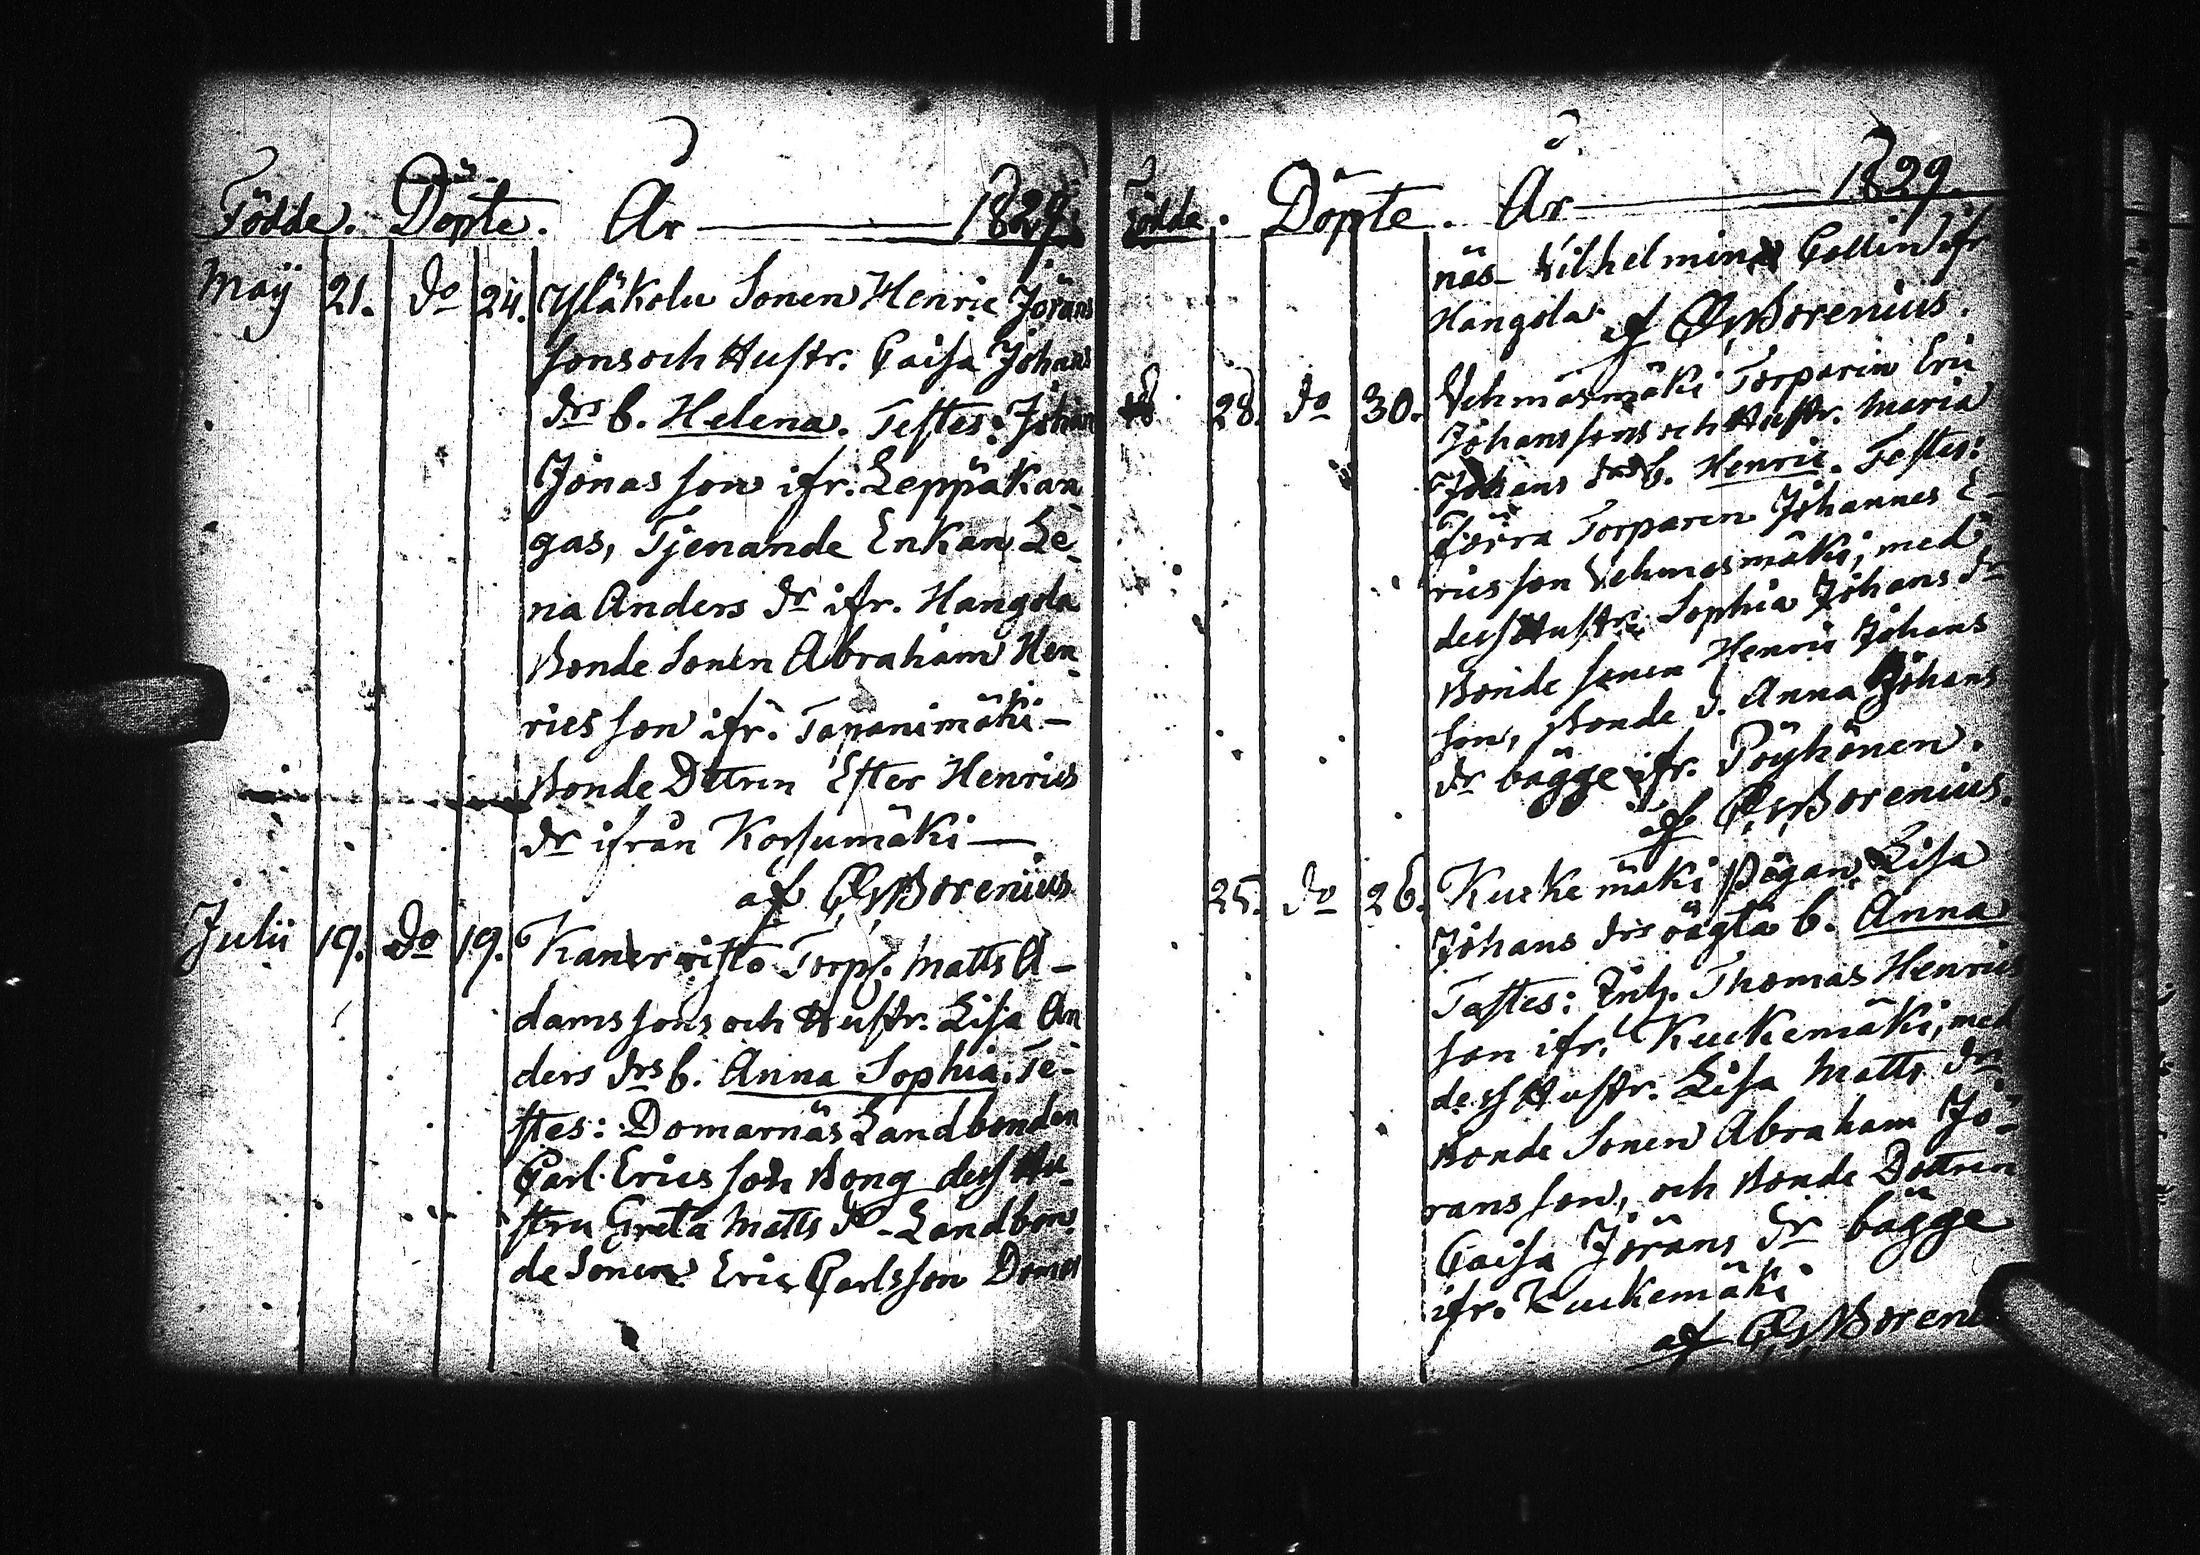 Födde. Döpte. År — 1829.
Maÿ 21. do 24. Yläkolu Sonen Henric Jörans
sons och Hustr. Caisa Johans
drs b. Helena. Testes: Johan
Jonas son ifr. Leppäkan
gas, Tjenande Enkan Le-
na Anders dr ifr. Hangola
Bonde Sonen Abraham Hen-
rics son ifr. Tapanimäki —
Bonde Dttrn Ester Henrics
dr ifrån Korsumäki —
af Borenius
Julii 19. do 19. Torp. Matts A-
dams sons och Hustr. Lisa An
ders drs b. Anna Sophia. Te-
stes: Domarnäs Landbonden
Carl Erics son Bong dess Hu-
stru Greta Matts dr - Landbon-
de Sonen Eric Carlsson Domar
Födde. Döpte. År — 1829.
näs - Vilhelmina Collin ifr
Hangola. af Borenius.
28. do 30. Vehmasmäki Torparen Eric
Johans sons och Hustr. Maria
Johans drs b. Henric. Testes:
Förra Torparen Johannes E-
rics son Vehmasmäki, med
dess Hustru Sophia Johans dr
Bonde sonen Henric Johans
son, Bonde d. Anna Johans
dr bägge ifr. Pöyhönen.
af Borenius.
25. do 26. Kuckemäki Pigan Lisa
Johans drs oägta b. Anna
Testes: Inh. Thomas Henrics
son ifr. Kuckemäki, med
dess Hustr. Lisa Matts dr
Bonde Sonen Abraham Jö-
rans son, och Bonde Dottren
Caisa Jörans dr bägge
ifr. Kuckemäki
af Boreni